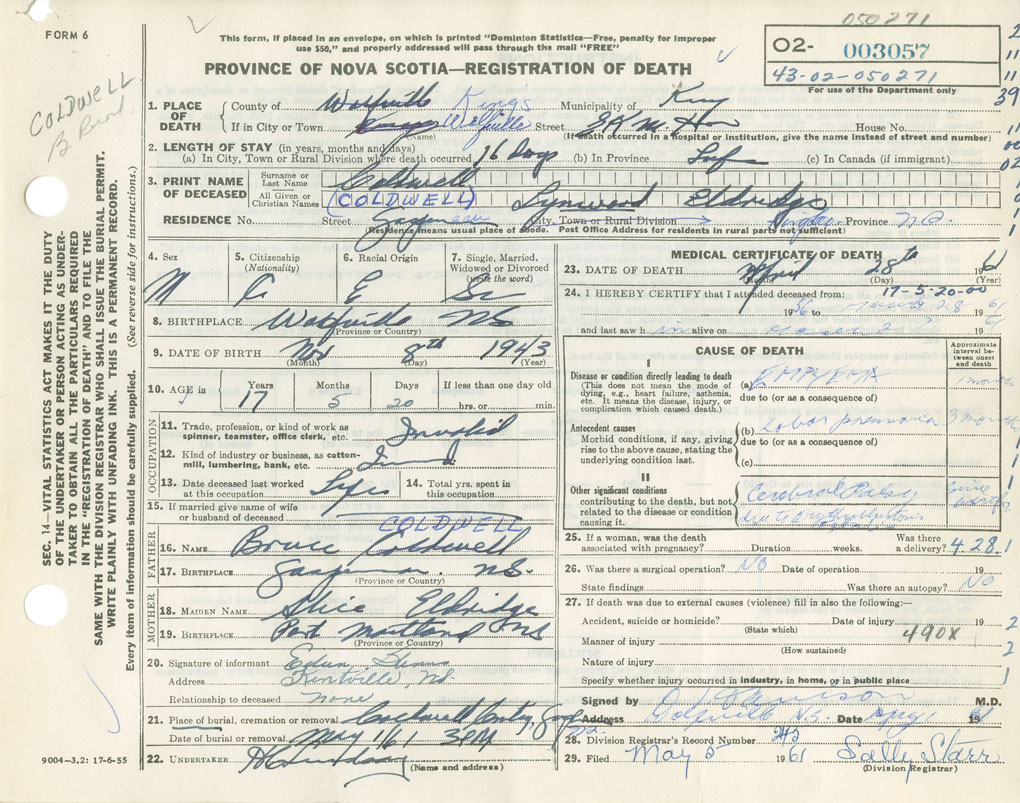 050271
FORM 6
This form, if placed in an envelope, on which is printed "Dominion Statistics—Free, penalty for improper
use $50," and properly addressed will pass through the mail "FREE"
PROVINCE OF NOVA SCOTIA—REGISTRATION OF DEATH
O2- 003057
43-02-050271
For use of the Department only
39
COLDWELL
1. PLACE OF DEATH County of Wolfville Kings Municipality of King
If in City or Town Kings Wolfville Street E K M Hos House No.
(Name) (If death occurred in a hospital or institution, give the name instead of street and number)
2. LENGTH OF STAY (in years, months and days)
(a) In City, Town or Rural Division where death occurred 16 days (b) In Province Life (c) In Canada (if immigrant)
3. PRINT NAME OF DECEASED Surname or Last Name Coldwell
All Given or Christian Names (COLDWELL) Lynwood Eldridge
RESIDENCE No. Street Gaspereau City, Town or Rural Division Province N.S.
(Residence means usual place of abode. Post Office Address for residents in rural parts not sufficient)
SEC. 14—VITAL STATISTICS ACT MAKES IT THE DUTY
OF THE UNDERTAKER OR PERSON ACTING AS UNDER-
TAKER TO OBTAIN ALL THE PARTICULARS REQUIRED
IN THE "REGISTRATION OF DEATH" AND TO FILE THE
SAME WITH THE DIVISION REGISTRAR WHO SHALL ISSUE THE BURIAL PERMIT.
WRITE PLAINLY WITH UNFADING INK. THIS IS A PERMANENT RECORD.
Every item of information should be carefully supplied. (See reverse side for instructions.)
4. Sex M
5. Citizenship (Nationality) C
6. Racial Origin E
7. Single, Married, Widowed or Divorced (write the word) Si
8. BIRTHPLACE Wolfville NS
(Province or Country)
9. DATE OF BIRTH Nov 8th 1943
(Month) (Day) (Year)
10. AGE in Years Months Days If less than one day old
17 5 20 hrs. or min.
OCCUPATION
11. Trade, profession, or kind of work as spinner, teamster, office clerk, etc. Invalid
12. Kind of industry or business, as cotton-mill, lumbering, bank, etc.
13. Date deceased last worked at this occupation Life 14. Total yrs. spent in this occupation
15. If married give name of wife or husband of deceased
COLDWELL
FATHER
16. NAME Bruce Coldwell
17. BIRTHPLACE Gaspereau N.S.
(Province or Country)
MOTHER
18. MAIDEN NAME Alice Eldridge
19. BIRTHPLACE Port Maitland NS
(Province or Country)
20. Signature of informant
Address Kentville, NS.
Relationship to deceased none
21. Place of burial, cremation or removal
Date of burial or removal May 1/61 3PM
22. UNDERTAKER
(Name and address)
9004—3.2: 17-6-55
MEDICAL CERTIFICATE OF DEATH
23. DATE OF DEATH April 28th 1961
(Month) (Day) (Year)
17-5-20-00
24. I HEREBY CERTIFY that I attended deceased from:
1956 to 28 1961
and last saw him alive on 1961
CAUSE OF DEATH
Approximate interval between onset and death
I
Disease or condition directly leading to death (a) EMPYEMA 1 month
(This does not mean the mode of dying, e.g., heart failure, asthenia, etc. It means the disease, injury, or complication which caused death.)
due to (or as a consequence of)
Antecedent causes (b) Lobar pneumonia 3 month
Morbid conditions, if any, giving rise to the above cause, stating the underlying condition last.
due to (or as a consequence of)
(c)
II
Other significant conditions Cerebral Palsy since birth
contributing to the death, but not related to the disease or condition causing it. due to
25. If a woman, was the death associated with pregnancy? Duration weeks. Was there a delivery? 4.28.1
26. Was there a surgical operation? NO Date of operation 19
State findings Was there an autopsy? No
27. If death was due to external causes (violence) fill in also the following:—
Accident, suicide or homicide? Date of injury 19
(State which)
490X
Manner of injury
(How sustained)
Nature of injury
Specify whether injury occurred in industry, in home, or in public place
Signed by M.D.
Address Wolfville N.S. Date 1961
28. Division Registrar's Record Number 45
29. Filed May 5 1961 Sally Starr
(Division Registrar)